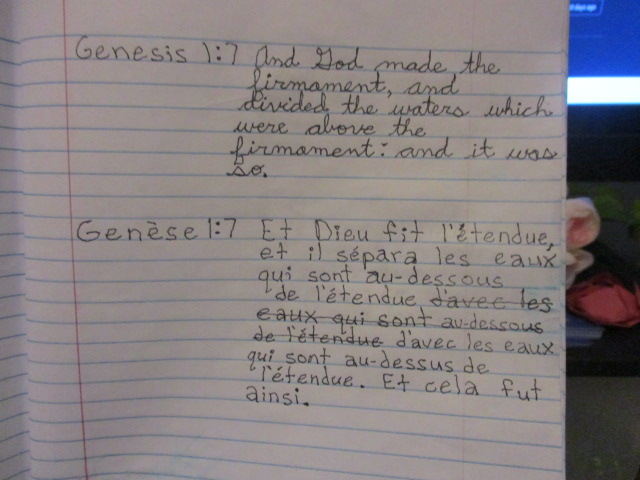 Genesis 1:7 And God made the
firmament, and
divided the waters which
were above the
firmament: and it was
so.
Genèse 1:7 Et Dieu fit l'étendue,
et il sépara les eaux
qui sont au-dessous
de l'étendue d'avec les
eaux qui sont au-dessous
de l'étendue d'avec les eaux
qui sont au-dessus de
l'étendue. Et cela fut
ainsi.